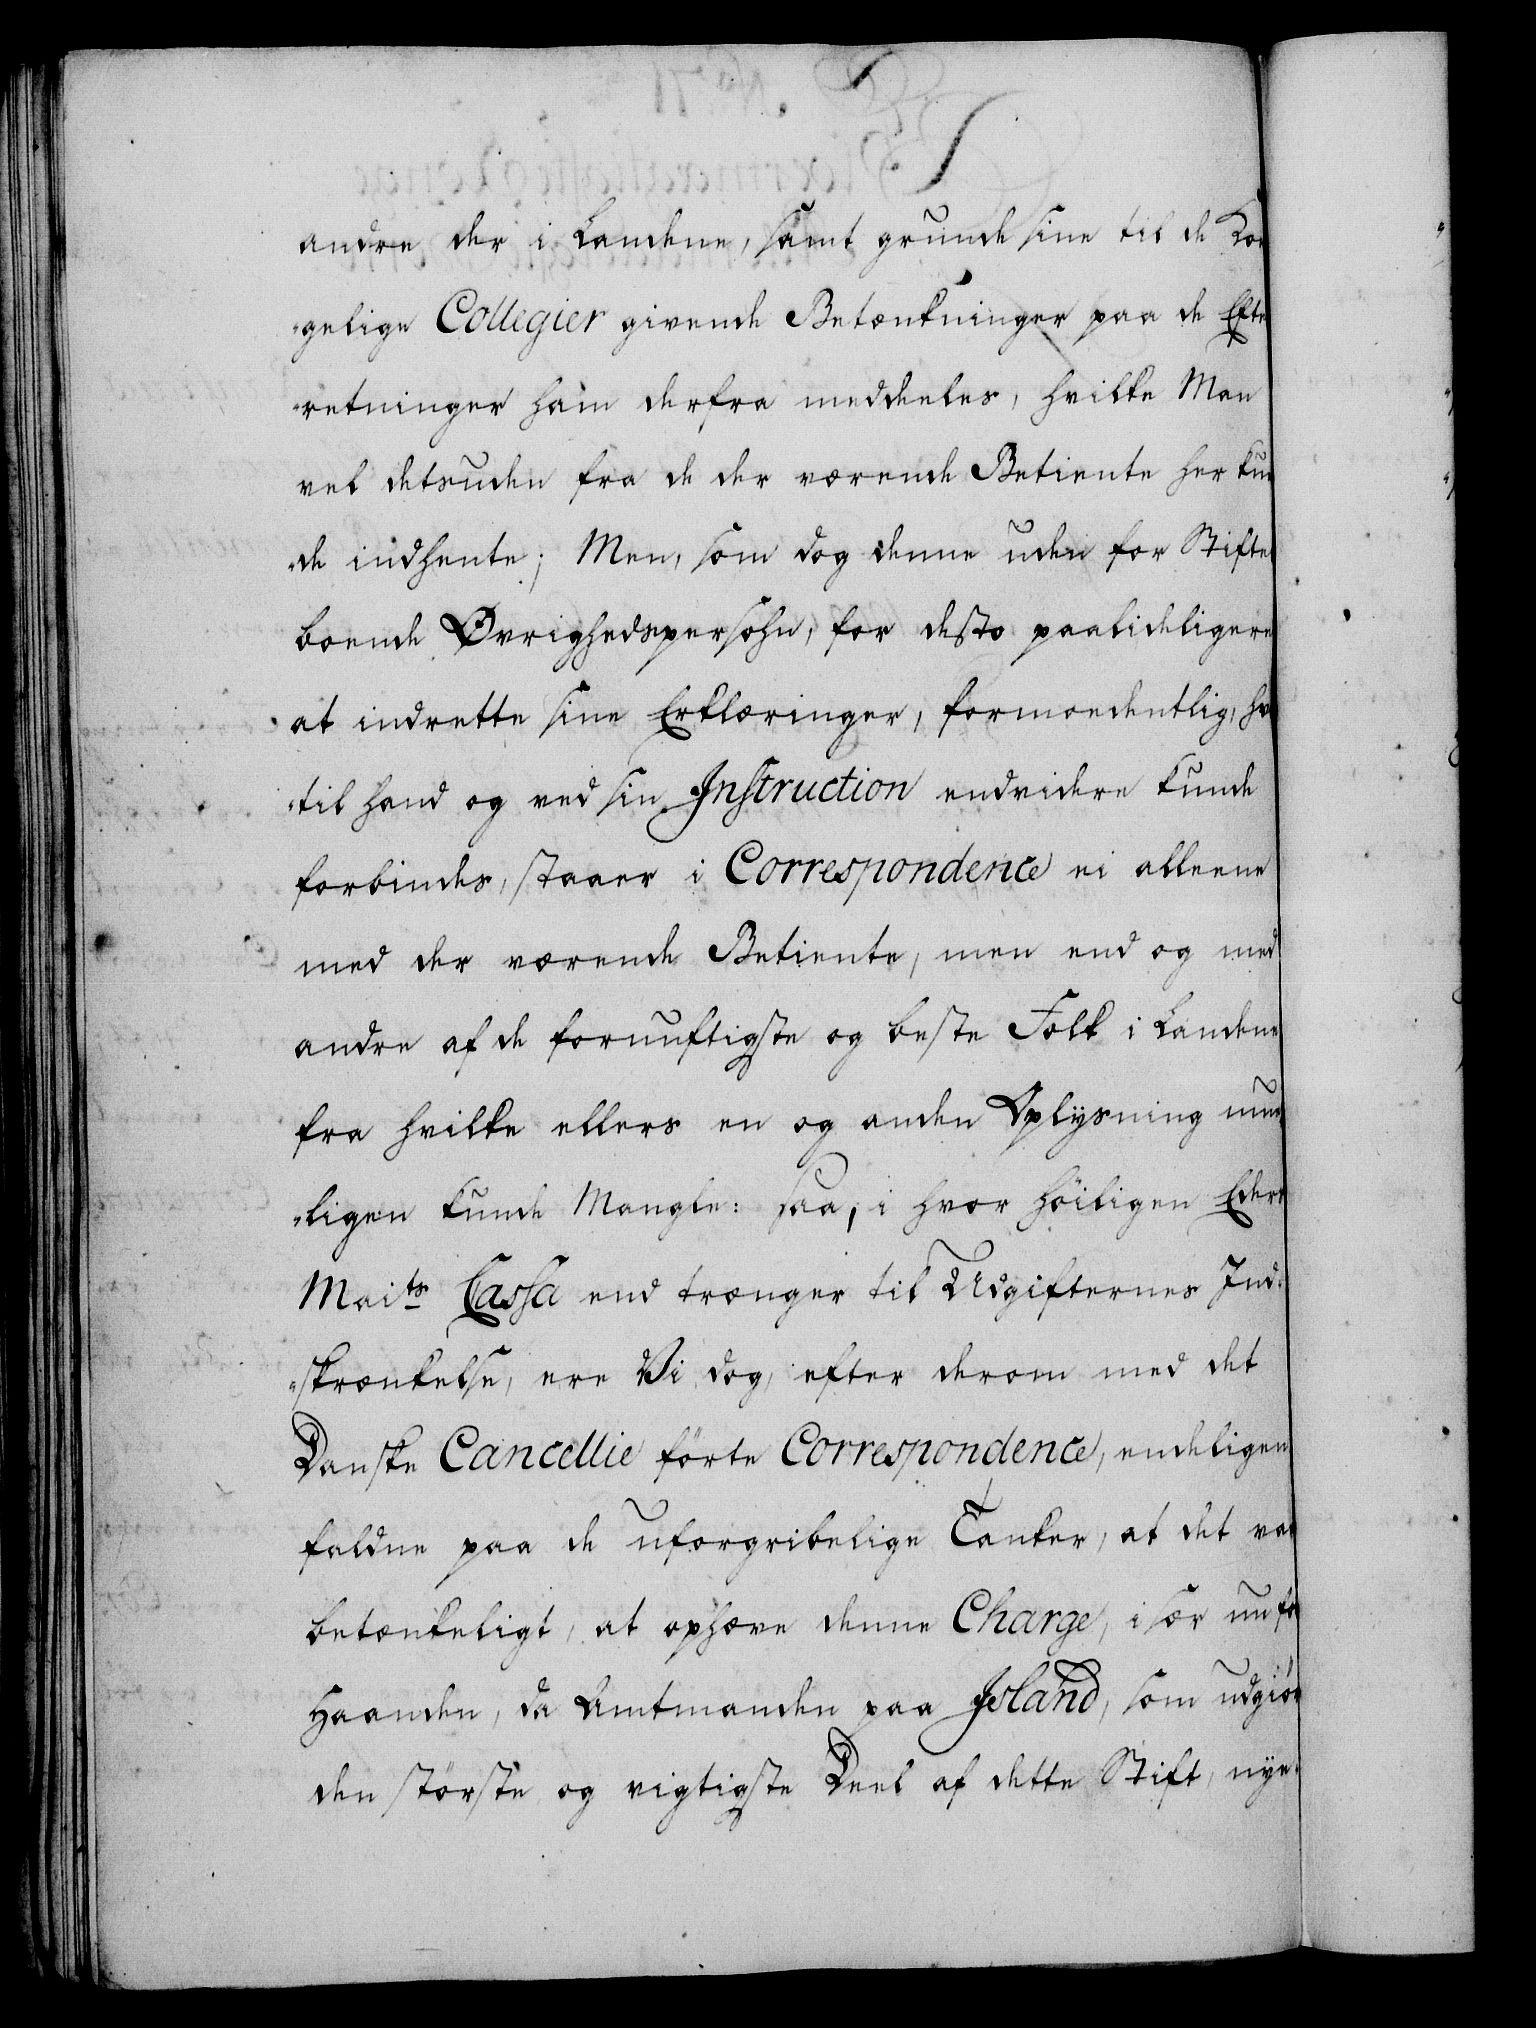 andre der i Landene, samt grunde sine til de Kon
-gelige Collegier givende Betænkninger paa de Efter
-retninger ham derfra meddeeles, hvilke Man
vel detsuden fra de der værende Betiente her kun
-de indhente; Men, som dog denne uden for Stiftet
boende Øvrighedspersohn, for desto paalideligere
at indrette sine Erklæringer, formoedentlig, hvor
-til hand og ved sin Instruction endvidere kunde
forbindes, staaer i Correspondence ei alleene
med der værende Betiente, men end og med
andre af de fornuftigste og beste Folk i Landene
fra hvilke ellers en og anden Oplysning mue
-ligen kunde Mangle: saa, i hvor höiligen Eders
Maits Cassa end trænger til Udgifternes Ind-
-skrænkelse, ere Vi dog, efter derom med det
Danske Cancellie förte Correspondence, endeligen
faldne paa de uforgribelige Tanker, at det var
betænkeligt, at ophæve denne Charge, i sær nu for
Haanden, da Amtmanden paa Island, som udgiör
den störste og vigtigste Deel af dette Stift, nye-